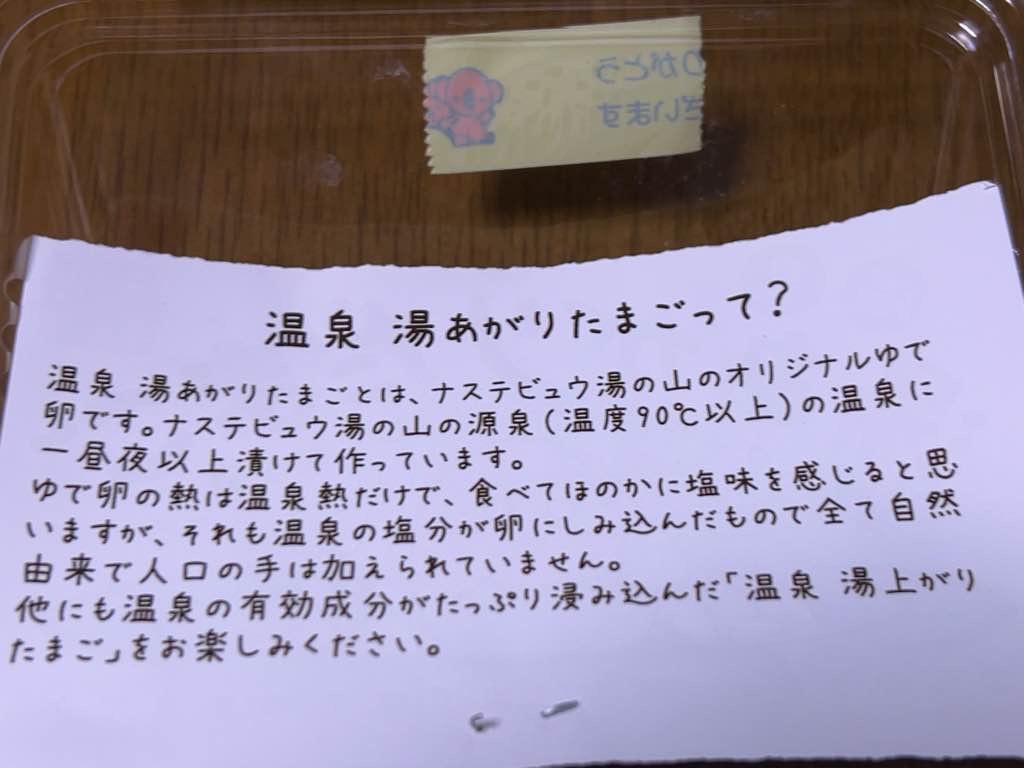 りがとう
ざいます
温泉 湯あがりたまごって?
温泉 湯あがりたまごとは、ナステビュウ湯の山のオリジナルゆで
卵です。ナステビュウ湯の山の源泉(温度90℃以上)の温泉に
一昼夜以上漬けて作っています。
ゆで卵の熱は温泉熱だけで、食べてほのかに塩味を感じると思
いますが、それも温泉の塩分が卵にしみ込んだもので全て自然
由来で人口の手は加えられていません。
他にも温泉の有効成分がたっぷり浸み込んだ「温泉 湯上がり
たまご」をお楽しみください。